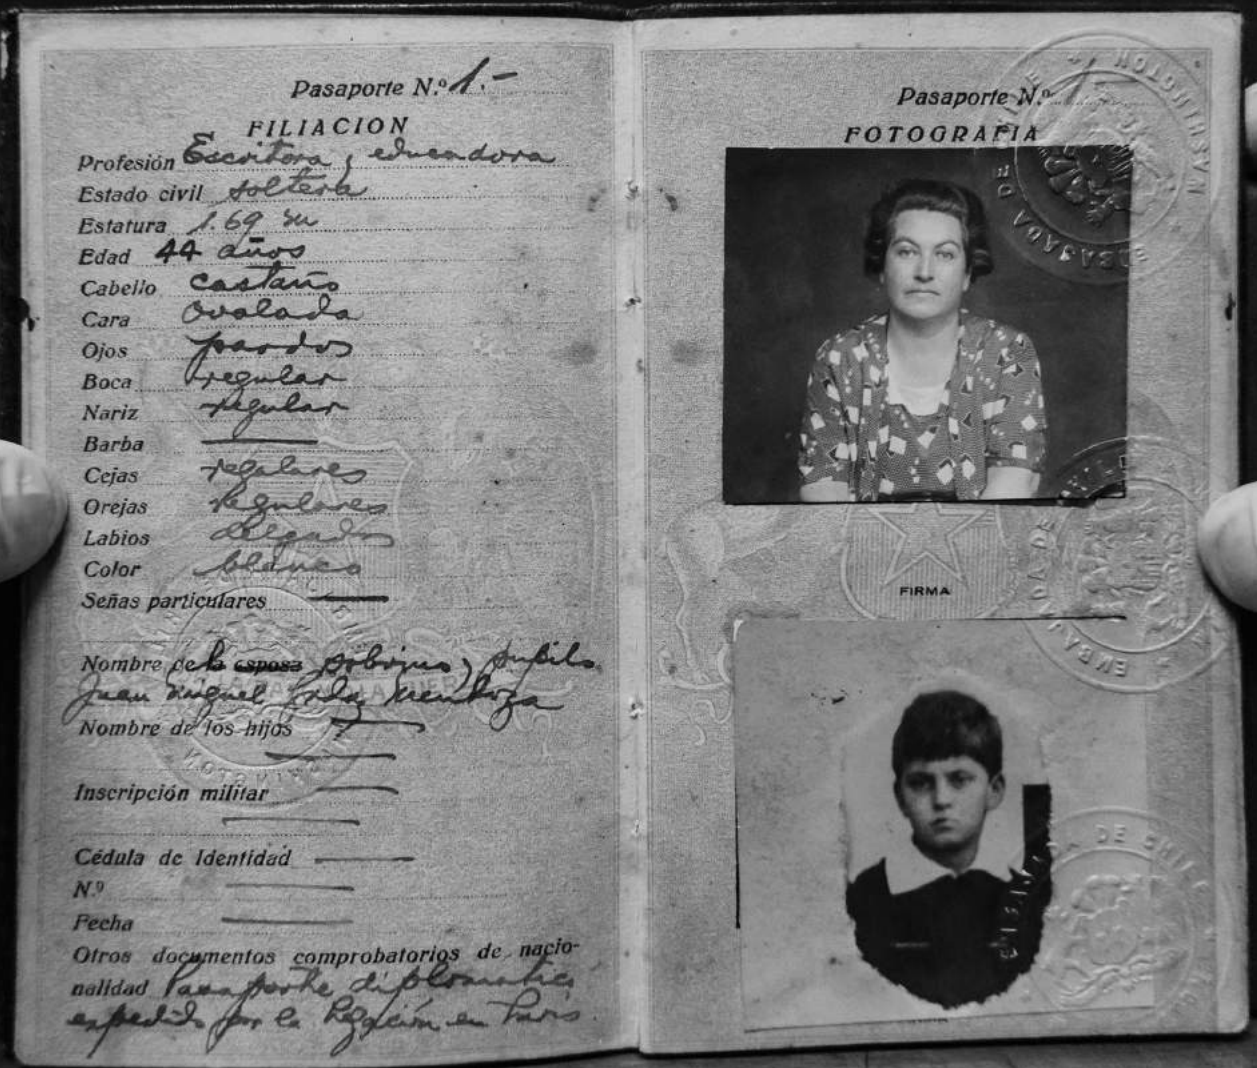 Pasaporte N.º 1.-
FILIACION
Profesión Escritora y educadora
Estado civil soltera
Estatura 1.69 m
Edad 44 años
Cabello castaño
Cara ovalada
Ojos pardos
Boca regular
Nariz regular
Barba
Cejas regulares
Orejas regulares
Labios delgados
Color blanco
Señas particulares
Nombre de la esposa sobrino, pupilo
Juan Miguel Mendoza
Nombre de los hijos
Inscripción militar
Cédula de Identidad
N.º
Fecha
Otros documentos comprobatorios de nacio-
nalidad Pasaporte diplomatico
expedido por la Legación en Paris.
Pasaporte N.º
FOTOGRAFIA
EMBAJADA DE CHILE
WASHINGTON
FIRMA
EMBAJADA DE CHILE
EMBAJADA DE CHILE
WASHINGTON